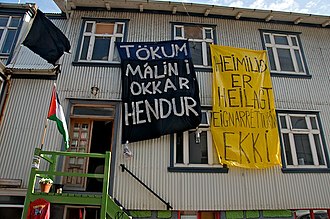 TÖKUM
MÁLIN Í
OKKAR
HENDUR
HEIMILIÐ
ER
HEILAGT
EIGNARRÉTTURINN
EKKI